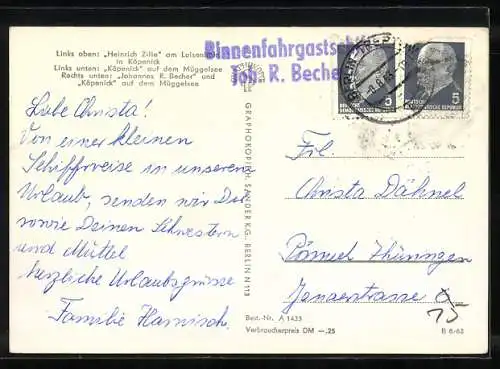 Links oben: "Heinrich Zille" am Luisenhain
in Köpenick
Links unten: "Köpenick" auf dem Müggelsee
Rechts unten: "Johannes R. Becher" und
"Köpenick" auf dem Müggelsee
Binnenfahrgastschiff
Joh. R. Becher
5
DEUTSCHE
DEMOKRATISCHE REPUBLIK
5
Liebe Christa!
Von einer kleinen
Schiffsreise in unserem
Urlaub, senden wir Dir
sowie Deinen Schwestern
und Mutter
herzliche Urlaubsgrüsse
Familie Harnisch.
GRAPHOKOPIE H. SANDER KG. BERLIN N 113
Frl.
Christa Dähnel
Thüringen
Jenaerstrasse
15
Best.-Nr. A 1435
Verbraucherpreis DM —,25
B 6/63